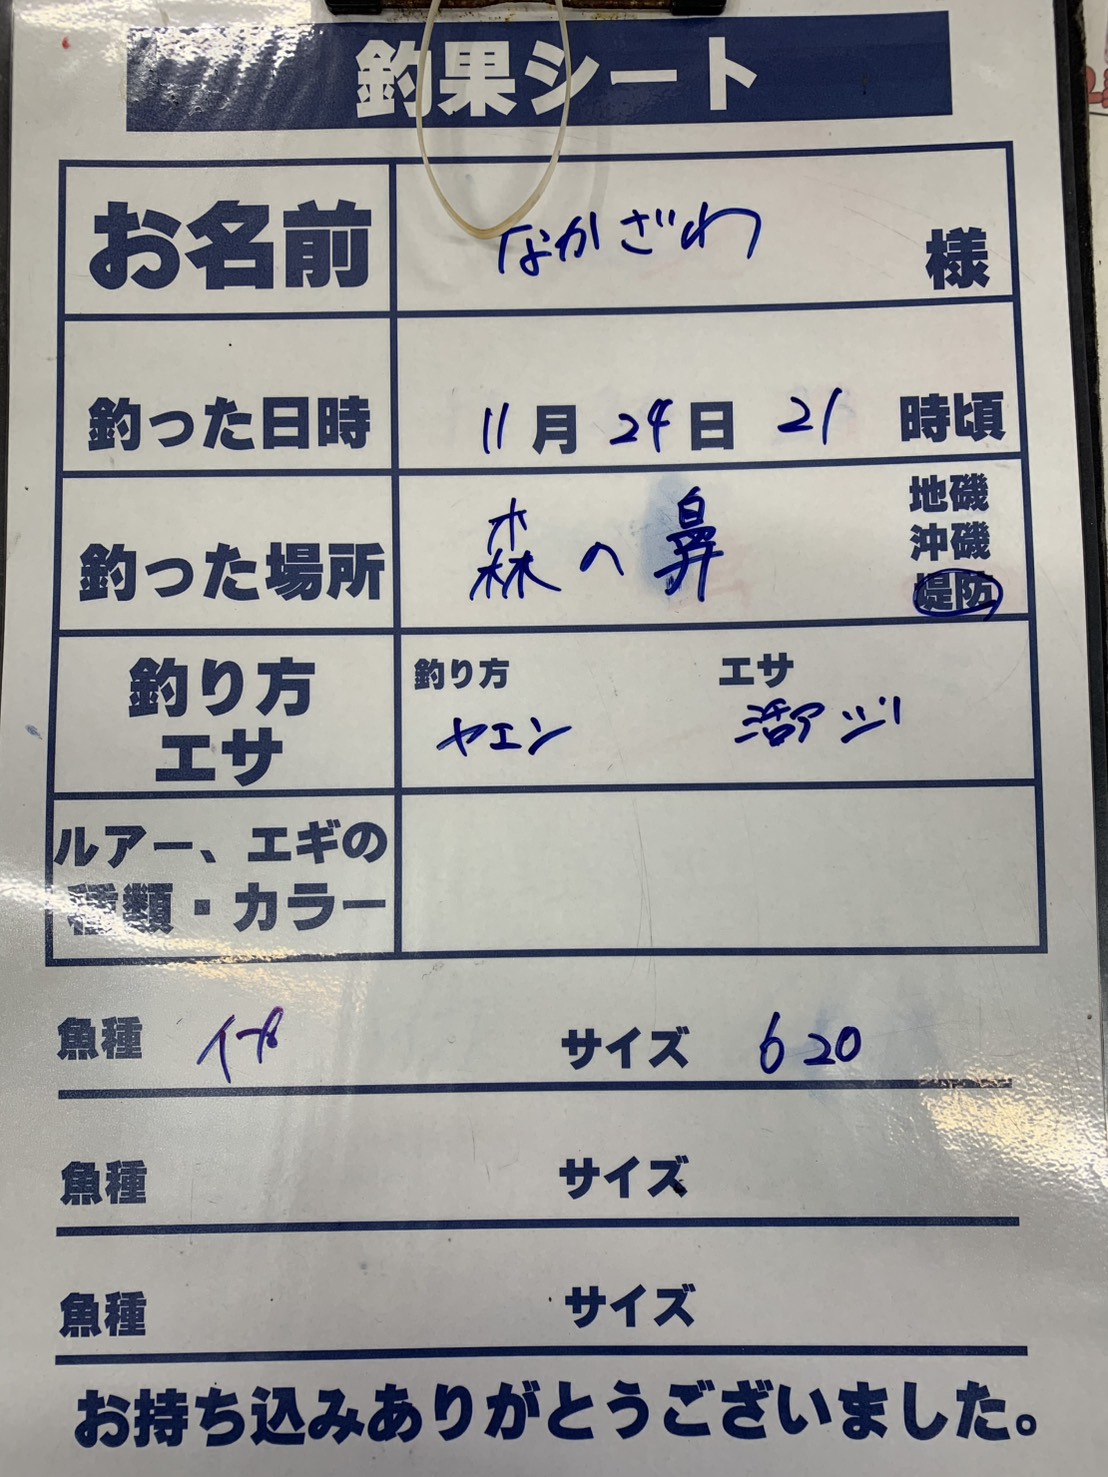 釣果シート
お名前 なかざわ 様
釣った日時 11月24日 21 時頃
釣った場所 森の鼻 地磯
沖磯
堤防
釣り方
エサ
釣り方 ヤエン
エサ 活アジ
ルアー、エギの
種類・カラー
魚種 サイズ 620
魚種 サイズ
魚種 サイズ
お持ち込みありがとうございました。